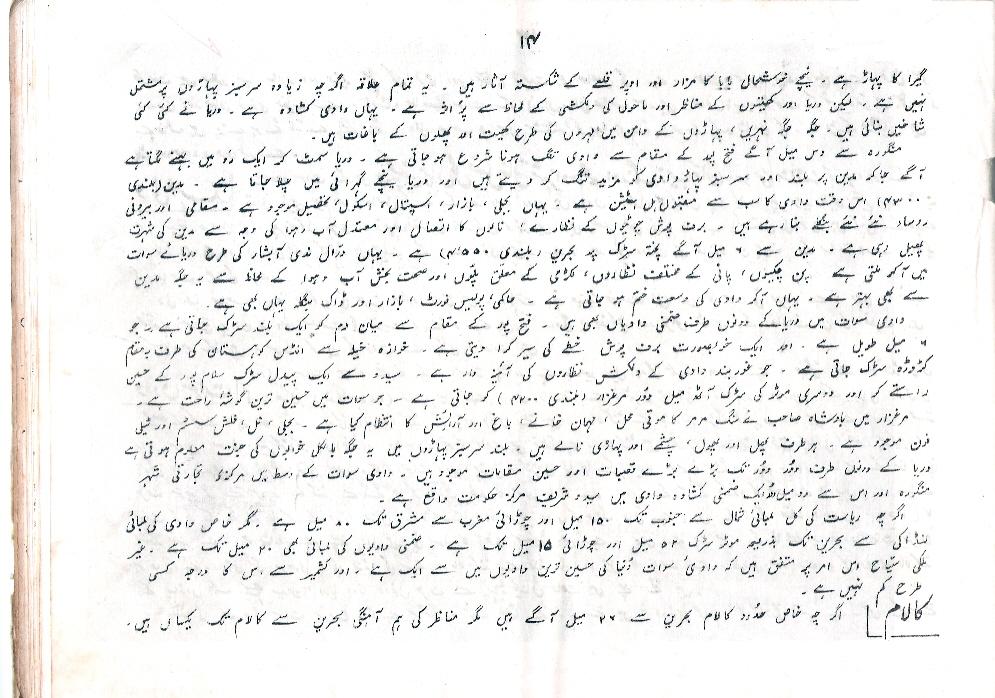 ۱۴
گیرا کا پہاڑ ہے ۔ نیچے خوشحال بابا کا مزار اور اوپر قلعے کے شکستہ آثار ہیں ۔ یہ تمام علاقہ اگرچہ زیادہ سرسبز پہاڑوں پر مشتمل
نہیں ہے ۔ لیکن دریا اور کھیتوں کے مناظر اور ماحول کی دلکشی کے لحاظ سے پُر اثر ہے ۔ یہاں وادی کشادہ ہے ۔ دریا نے کئی کئی
شاخیں بنائی ہیں ۔ جگہ جگہ نہریں، پہاڑوں کے دامن میں لہروں کی طرح کھیت اور پھلوں کے باغات ہیں ۔
منگورہ سے دس میل آگے فتح پور کے مقام سے وادی تنگ ہونا شروع ہو جاتی ہے ۔ دریا سمٹ کر ایک رَو میں بہنے لگتا ہے
آگے جاکر مدین پر بلند اور سرسبز پہاڑ وادی کو مزید تنگ کر دیتے ہیں اور دریا نیچے گہرائی میں چلا جاتا ہے ۔ مدین (بلندی
۴۳۰۰) اس وقت وادی کا سب سے مقبول ہل سٹیشن ہے ۔ یہاں بجلی، بازار، اسپتال، اسکول، تحصیل موجود ہے ۔ مقامی اور بیرونی
روساء نئے نئے بنگلے بنا رہے ہیں ۔ برف پوش چوٹیوں کے نظارے، نالوں کا اتصال اور معتدل آب و ہوا کی وجہ سے مدین کی شہرت
پھیل رہی ہے ۔ مدین سے ۶ میل آگے پختہ سڑک پر بحرین (بلندی ۴۵۵۰) ہے ۔ یہاں درال ندی آبشار کی طرح دریائے سوات
میں آکر ملتی ہے پن چکیوں، پانی کے مختلف نظاروں، لکڑی کے معلق پلوں اور صحت بخش آب و ہوا کے لحاظ سے یہ جگہ مدین
سے بھی بہتر ہے ۔ یہاں آکر وادی کی وسعت ختم ہو جاتی ہے ۔ حاکمی، پولیس فورٹ، بازار اور ڈاک بنگلہ یہاں بھی ہے ۔
وادی سوات میں دریا کے دونوں طرف ضمنی وادیاں بھی ہیں ۔ فتح پور کے مقام سے میان دم کو ایک بلند سڑک جاتی ہے ۔ جو
۶ میل طویل ہے ۔ اور ایک خوبصورت برف پوش خطے کی سیر کرا دیتی ہے ۔ خوازہ خیلہ سے انڈس کوہستان کی طرف بمقام
کڑوڑہ سڑک جاتی ہے ۔ جو غوربند وادی کے دلکش نظاروں کی آئینہ دار ہے ۔ سیدو سے ایک پیدل سڑک سلام پور کے حسین
راستے کو اور دوسری موٹر کی سڑک آٹھ میل دور مرغزار (بلندی ۴۲۰۰) کو جاتی ہے ۔ جو سوات میں حسین ترین گوشۂ راحت ہے ۔
مرغزار میں بادشاہ صاحب نے سنگ مرمر کا موتی محل، مہمان خانے، باغ اور آرائش کا انتظام کیا ہے ۔ بجلی، نل، فلش سسٹم اور ٹیلی
فون موجود ہے ۔ ہر طرف پھل اور پھول، چشمے اور پہاڑی نالے ہیں ۔ بلند سرسبز پہاڑوں میں یہ جگہ بالکل خوابوں کی جنت معلوم ہوتی ہے
دریا کے دونوں طرف دور دور تک بڑے بڑے قصبات اور حسین مقامات موجود ہیں ۔ وادی سوات کے وسط میں مرکزی تجارتی شہر
منگورہ اور اس سے دو میل ایک ضمنی کشادہ وادی میں سیدو شریف مرکز حکومت واقع ہے ۔
اگر چہ ریاست کی کل لمبائی شمال سے جنوب تک ۱۵۰ میل اور چوڑائی مغرب سے مشرق تک ۸۰ میل ہے ۔ مگر خاص وادی کی لمبائی
لنڈاکی سے بحرین تک بذریعہ موٹر سڑک ۵۲ میل اور چوڑائی ۱۵ میل تک ہے ۔ ضمنی وادیوں کی لمبائی بھی ۲۰ میل تک ہے ۔ غیر
ملکی سیاح اس امر پر متفق ہیں کہ وادیٔ سوات دُنیا کی حسین ترین وادیوں میں سے ایک ہے ۔ اور کشمیر سے اس کا درجہ کسی
طرح کم نہیں ہے ۔
کالام اگر چہ خاص حدود کالام بحرین سے ۲۶ میل آگے ہیں مگر مناظر کی ہم آہنگی بحرین سے کالام تک یکساں ہیں ۔